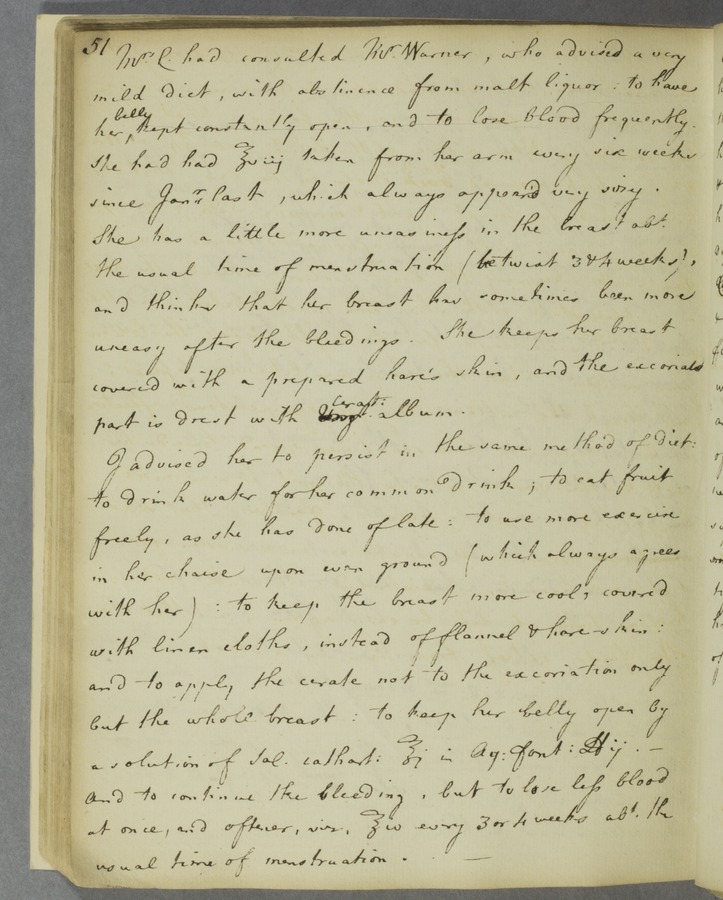 51
Mrs. C. had consulted Mr. Warner, who advised a very
mild diet, with abstinence from malt liquor: to have
belly
her, kept constantly open, and to lose blood frequently.
She had had ℥viij taken from her arm every six weeks
since Janry last, which always appear'd very sizy.
She has a little more uneasiness in the breast abt.
the usual time of menstruation (betwixt 3 & 4 weeks),
and thinks that her breast has sometimes been more
uneasy after the bleedings. She keeps her breast
covered with a prepared hare's skin, and the excoriated
cerat:
part is drest with album.
I advised her to persist in the same method of diet:
to drink water for her common drink; to eat fruit
freely, as she has done of late: to use more exercise
in her chaise upon even ground (which always agrees
with her): to keep the breast more cool, covered
with linen cloths, instead of flannel & hare-skin:
and to apply the cerate not to the excoriation only
but the whole breast: to keep her belly open by
a solution of Sal. cathart: ℥j in Aq: font: ℔ij. —
and to continue the bleeding, but to lose less blood
at once, and oftener, viz. ℥iv every 3 or 4 weeks abt. the
usual time of menstruation. —